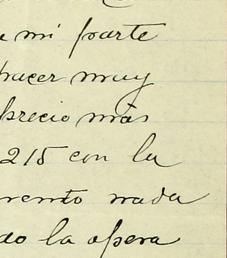 e mi parte
hacer muy
precio más
215 con la
mento nada
do la opera